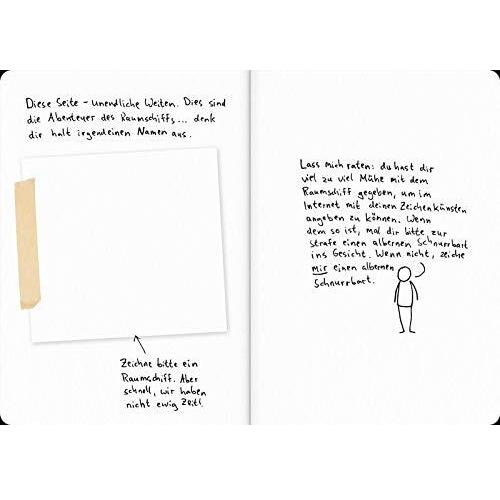 Diese Seite – unendliche Weiten. Dies sind
die Abenteuer des Raumschiffs... denk
dir halt irgendeinen Namen aus.
Zeichne bitte ein
Raumschiff. Aber
schnell, wir haben
nicht ewig Zeit!
Lass mich raten: du hast dir
viel zu viel Mühe mit dem
Raumschiff gegeben, um im
Internet mit deinen Zeichenkünsten
angeben zu können. Wenn
dem so ist, mal dir bitte zur
Strafe einen albernen Schnurrbart
ins Gesicht. Wenn nicht, zeichne
mir einen albernen
Schnurrbart.